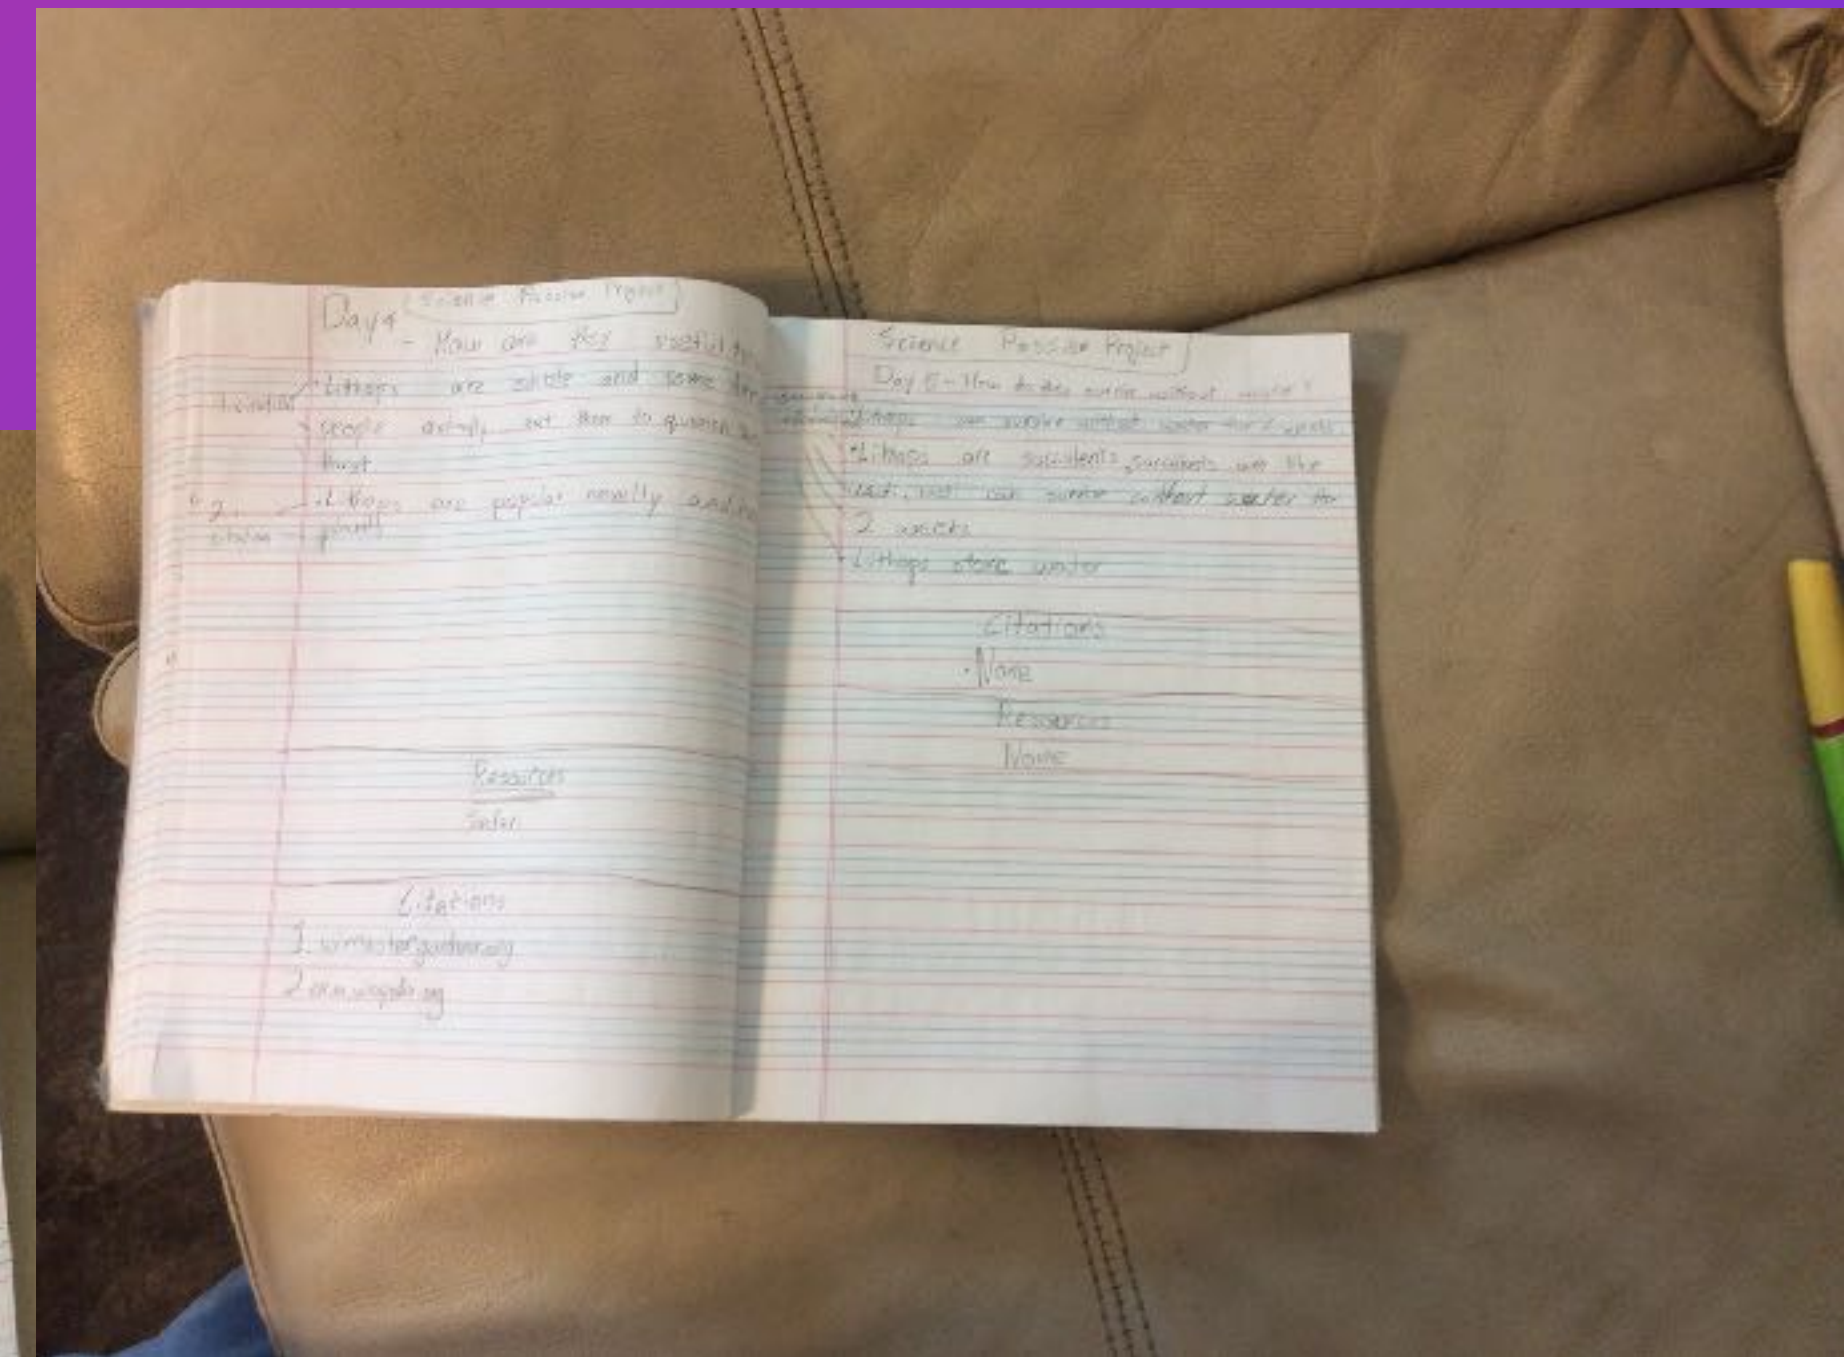 Day 4 Science Passion Project
- How are they useful
Lithops are edible and some
people actually eat them to quench
thirst
2 • Lithops are popular novelty and
citation
Resources
Safari
Citations
1. wimastergardener.org
2
Science Passion Project
Day 5 - How do they survive without water?
Lithops can survive without water for 2 weeks
• Lithops are succulents, succulents are like
can survive without water for
2 weeks
• Lithops store water
Citations
• None
Resources
None